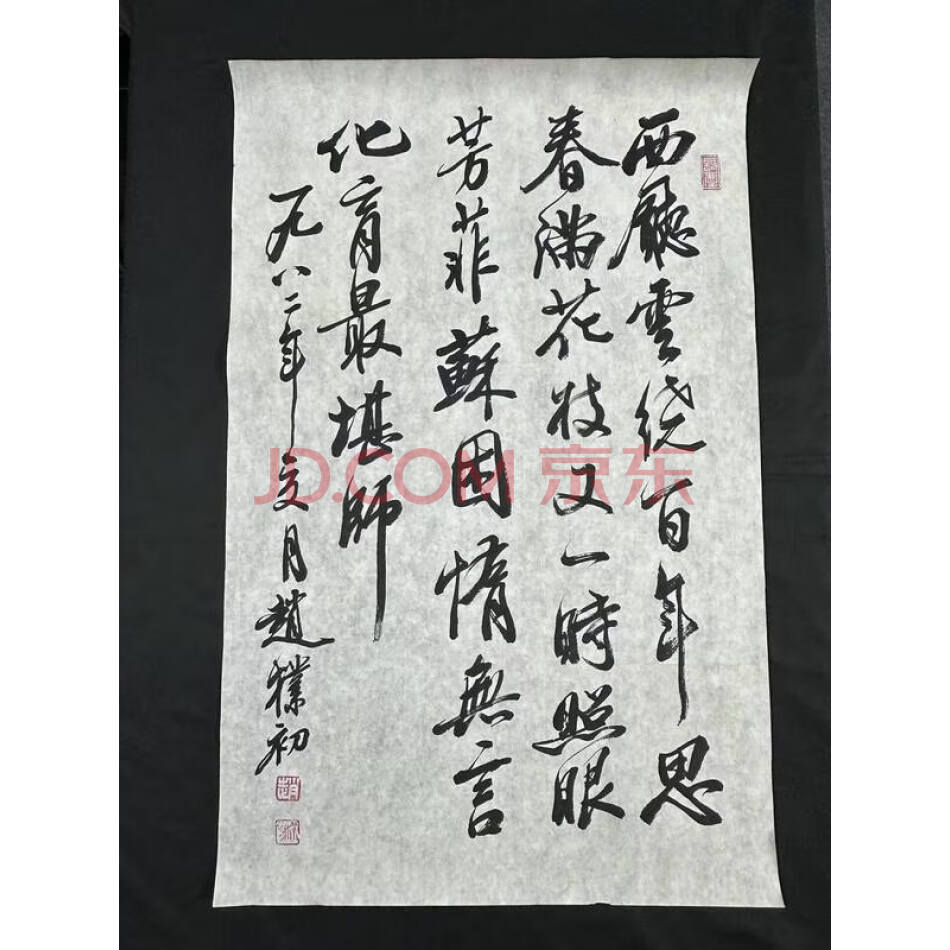 西廳雲绕百年思
春滿花枝又一時照眼
芳菲蘇困惰無言
化育最堪師
一九八二年六月趙樸初
JD.COM 京东